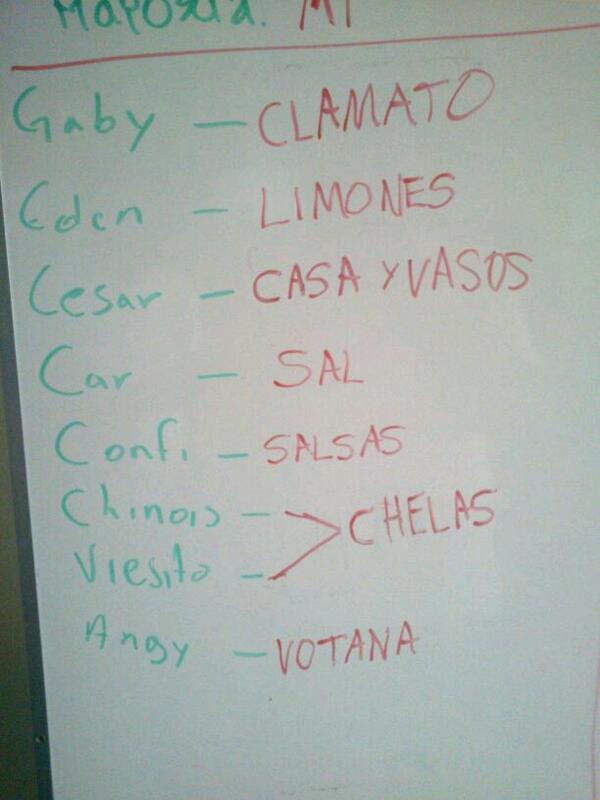 Gaby - CLAMATO
Eden - LIMONES
Cesar - CASA Y VASOS
Car - SAL
Confi - SALSAS
Chinois -
CHELAS
Viesito -
Angy - VOTANA